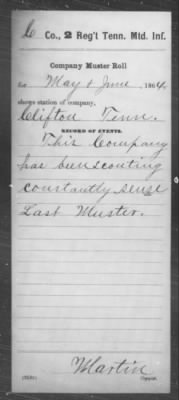 C Co., 2 Reg't Tenn. Mtd. Inf.
Company Muster Roll
for May & June, 1864,
shows station of company,
Clifton Tenn.
RECORD OF EVENTS.
This Company
has been scouting
constantly sense
Last Muster.
Martin
Copyist.